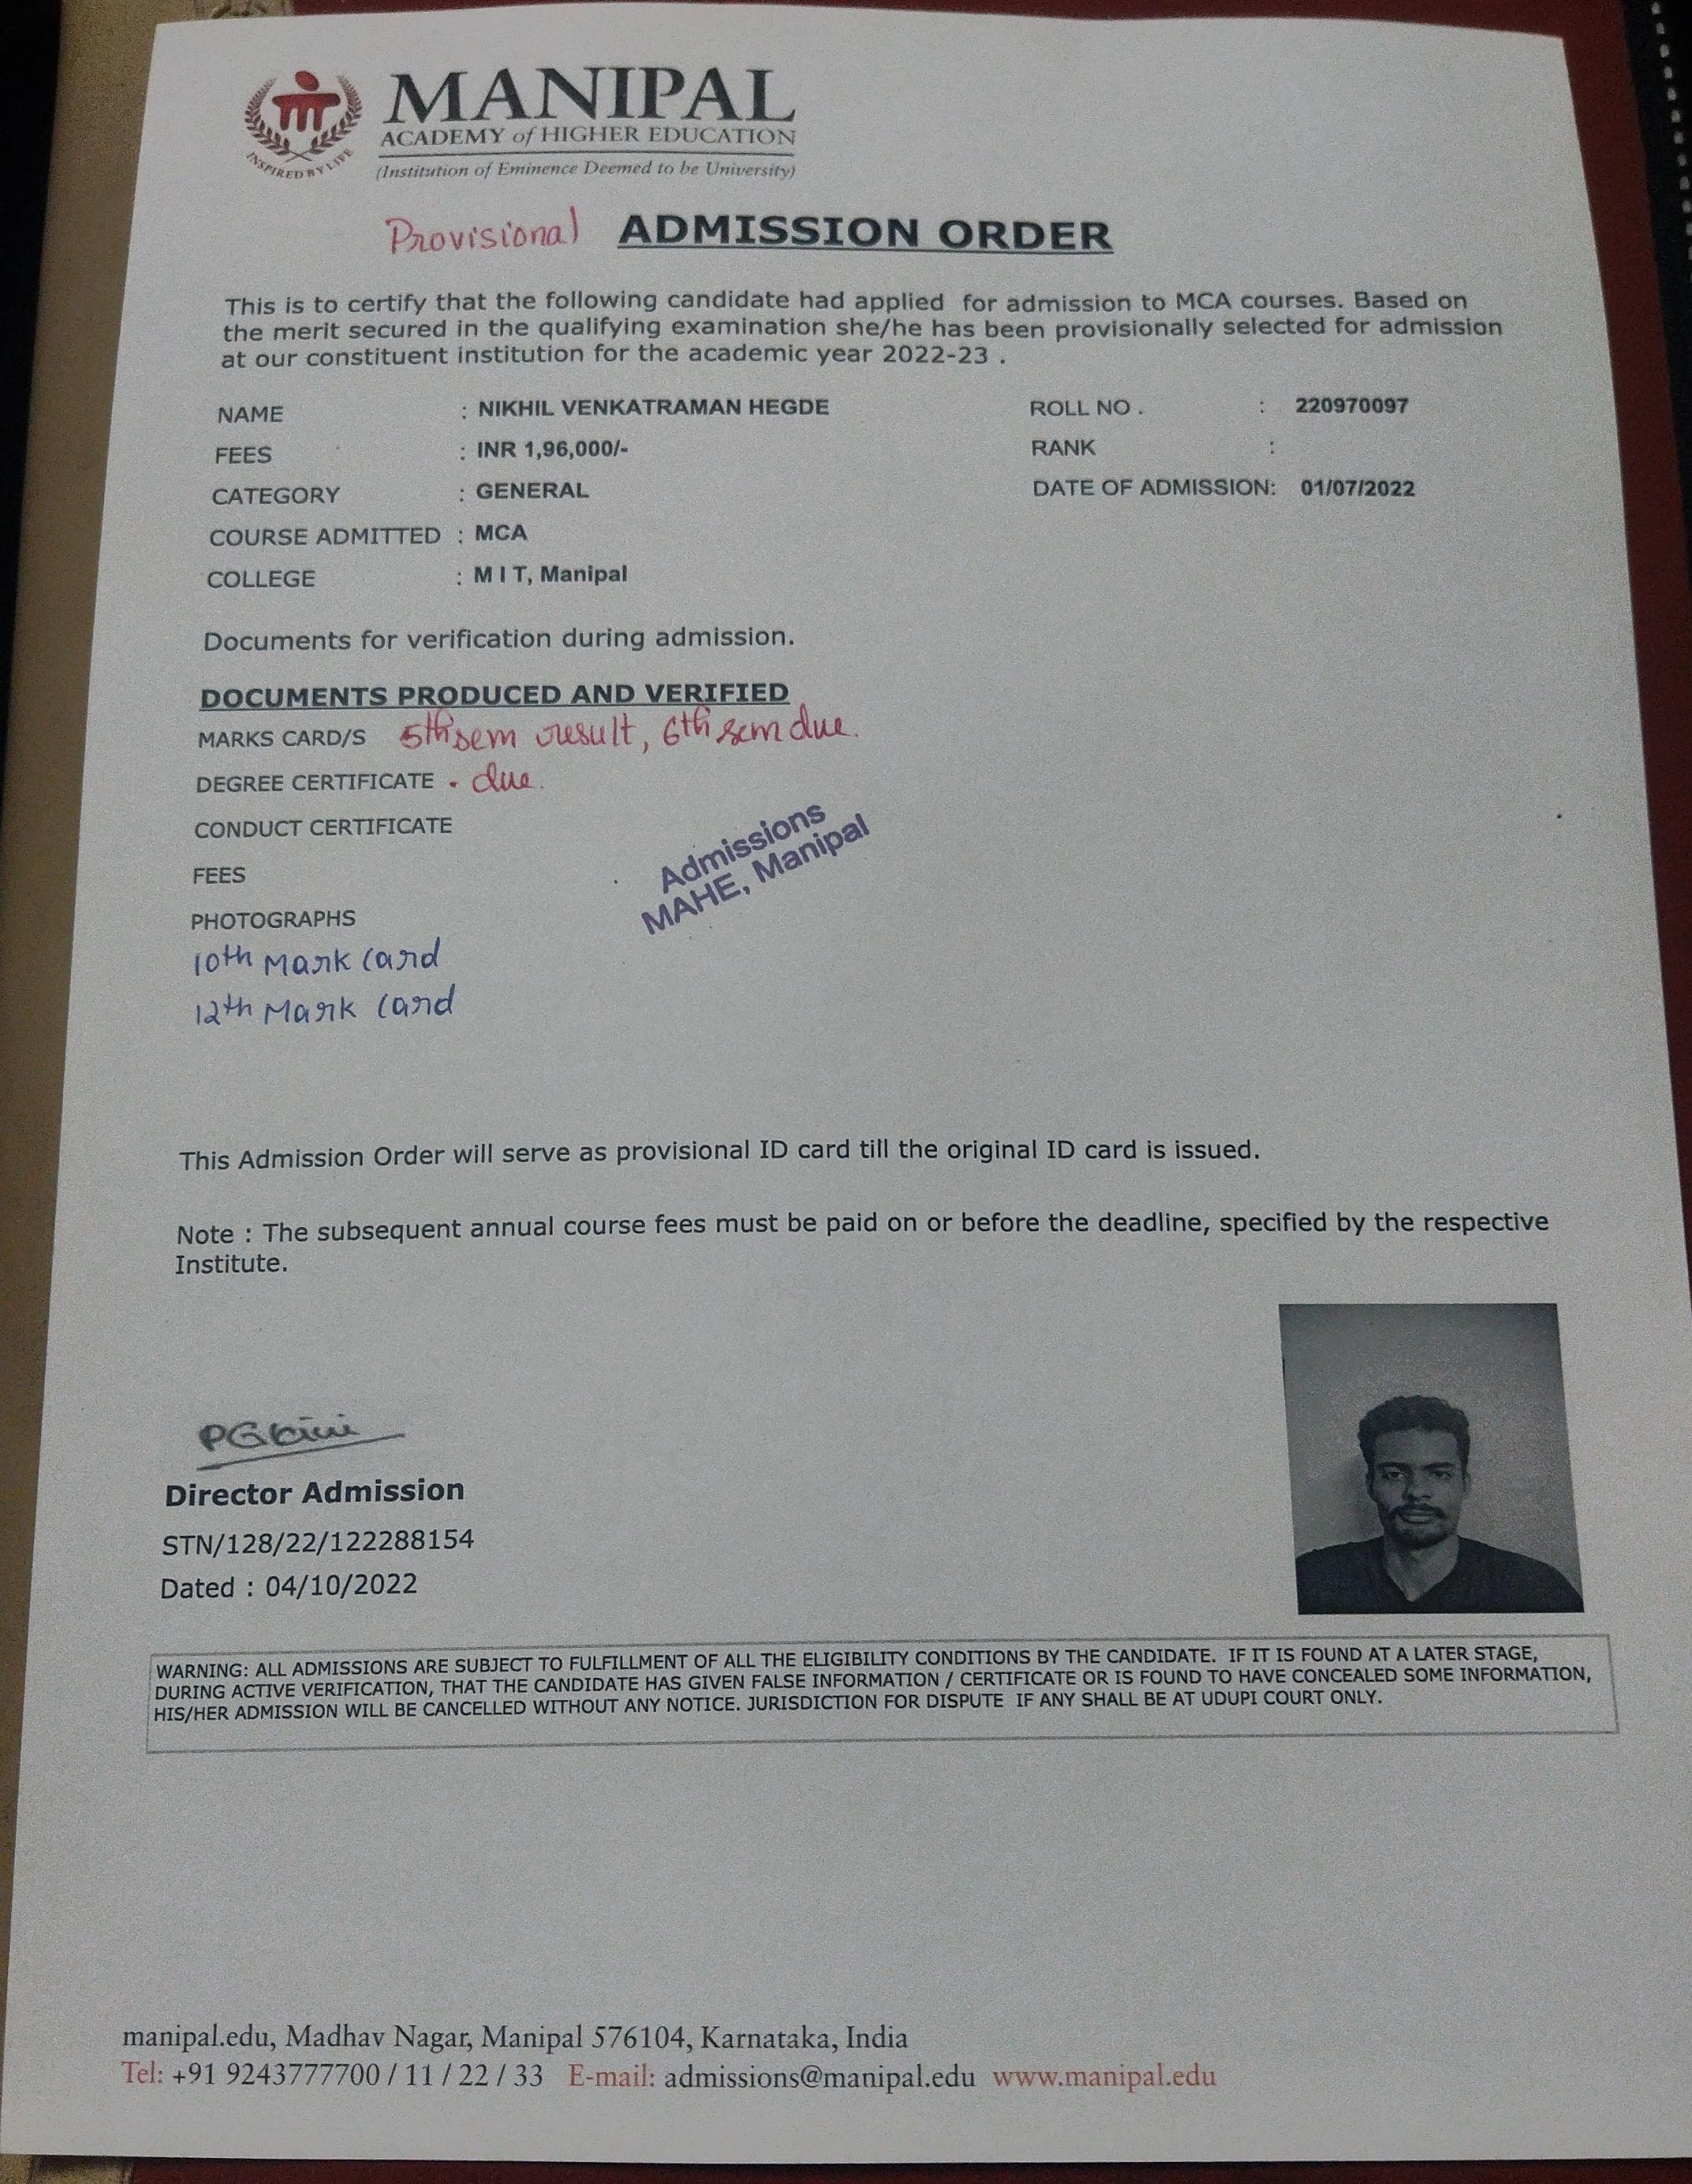 MANIPAL
ACADEMY of HIGHER EDUCATION
(Institution of Eminence Deemed to be University)
INSPIRED BY LIFE
Provisional ADMISSION ORDER
This is to certify that the following candidate had applied for admission to MCA courses. Based on
the merit secured in the qualifying examination she/he has been provisionally selected for admission
at our constituent institution for the academic year 2022-23 .
NAME : NIKHIL VENKATRAMAN HEGDE ROLL NO . : 220970097
FEES : INR 1,96,000/- RANK :
CATEGORY : GENERAL DATE OF ADMISSION: 01/07/2022
COURSE ADMITTED : MCA
COLLEGE : M I T, Manipal
Documents for verification during admission.
DOCUMENTS PRODUCED AND VERIFIED
MARKS CARD/S 5th sem result, 6th sem due.
DEGREE CERTIFICATE . due.
CONDUCT CERTIFICATE
Admissions
MAHE, Manipal
FEES
PHOTOGRAPHS
10th Mark Card
12th Mark Card
This Admission Order will serve as provisional ID card till the original ID card is issued.
Note : The subsequent annual course fees must be paid on or before the deadline, specified by the respective
Institute.
PGKini
Director Admission
STN/128/22/122288154
Dated : 04/10/2022
WARNING: ALL ADMISSIONS ARE SUBJECT TO FULFILLMENT OF ALL THE ELIGIBILITY CONDITIONS BY THE CANDIDATE. IF IT IS FOUND AT A LATER STAGE,
DURING ACTIVE VERIFICATION, THAT THE CANDIDATE HAS GIVEN FALSE INFORMATION / CERTIFICATE OR IS FOUND TO HAVE CONCEALED SOME INFORMATION,
HIS/HER ADMISSION WILL BE CANCELLED WITHOUT ANY NOTICE. JURISDICTION FOR DISPUTE IF ANY SHALL BE AT UDUPI COURT ONLY.
manipal.edu, Madhav Nagar, Manipal 576104, Karnataka, India
Tel: +91 9243777700 / 11 / 22 / 33 E-mail: admissions@manipal.edu www.manipal.edu